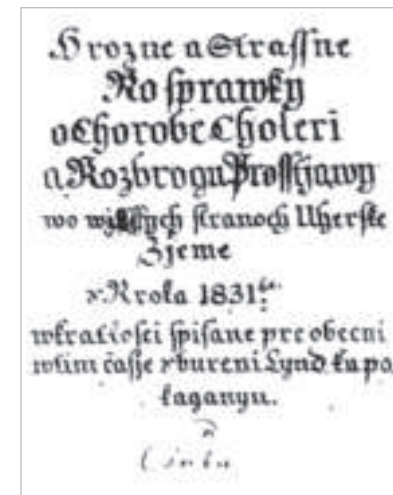 Hrozne a Strassne
Rosprawky
o Chorobe Choleri
a Rozbrogu Prossjawy
wo wissych stranoch Uherske
Zjeme
z Roka 1831
spisane pre obecni
wtim čassje zbureni Lynd ka po
kaganyu.